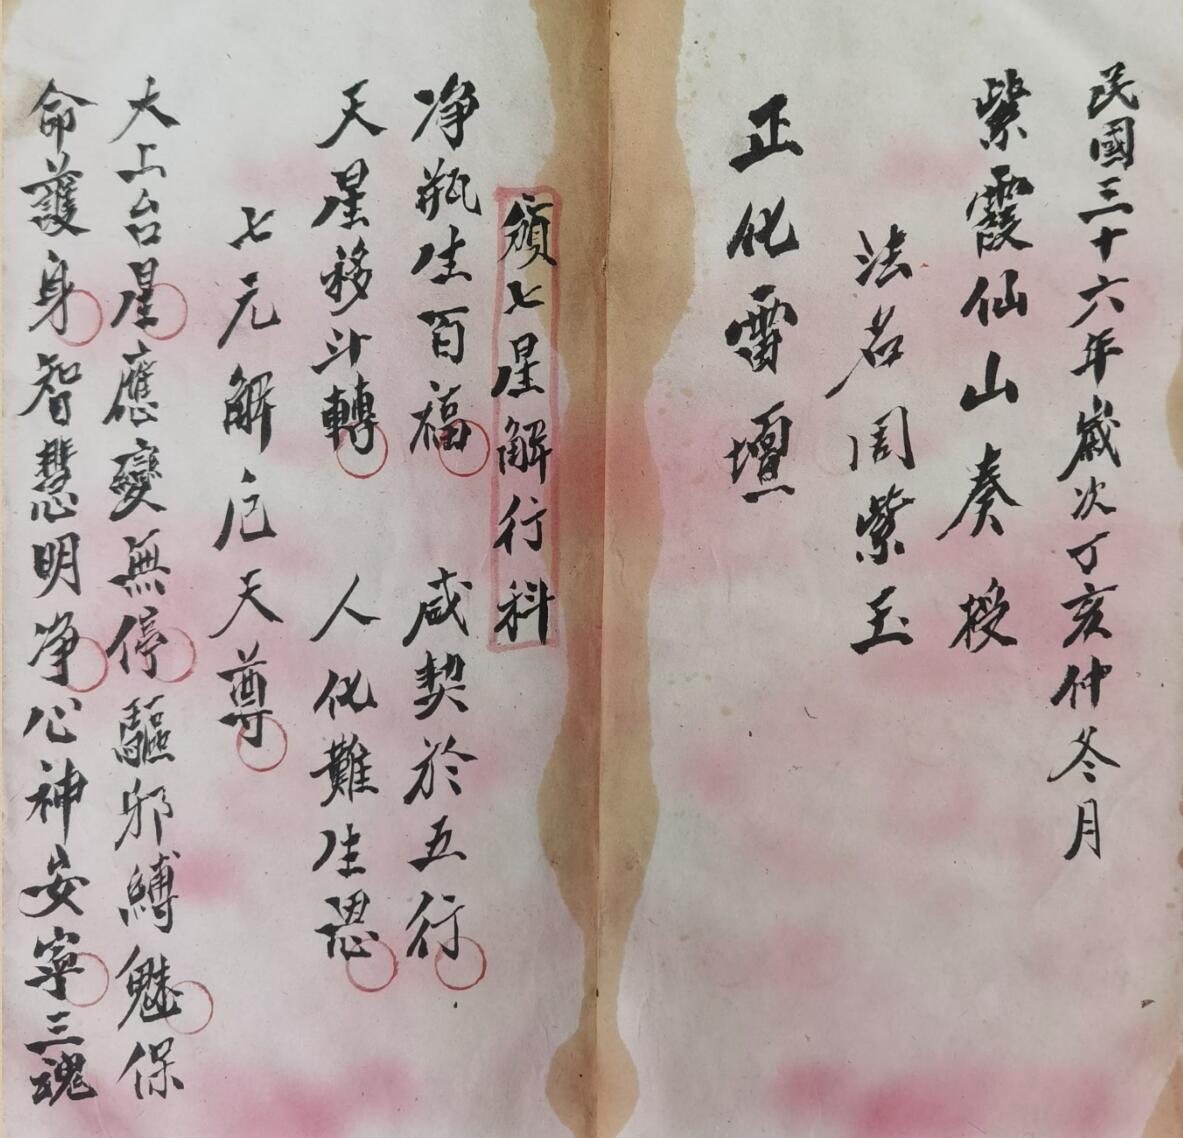 民國三十六年歲次丁亥仲冬月
紫霞仙山奏授
法名周紫玉
正化雷壇
頒七星解行科
净瓶生百福 咸契於五行
天星移斗轉 人化難生恩
七元解厄天尊
大上台星應變無停驅邪縛魅保
命護身智慧明净心神安寧三魂